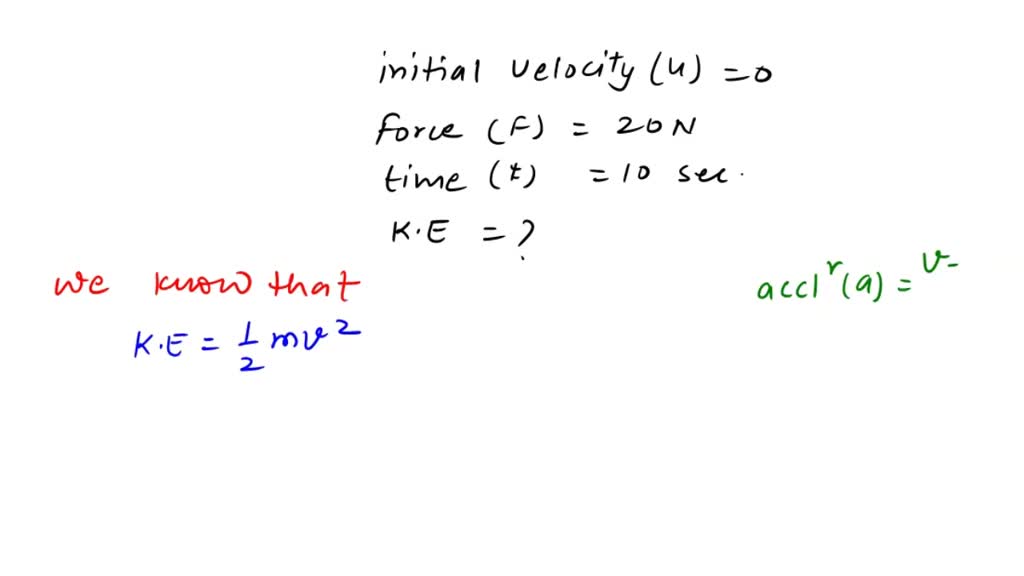 initial velocity (u) = 0
force (F) = 20 N
time (t) = 10 sec.
K.E = ?
we know that
accl^r (a) = v-
K.E = 1/2 mv^2